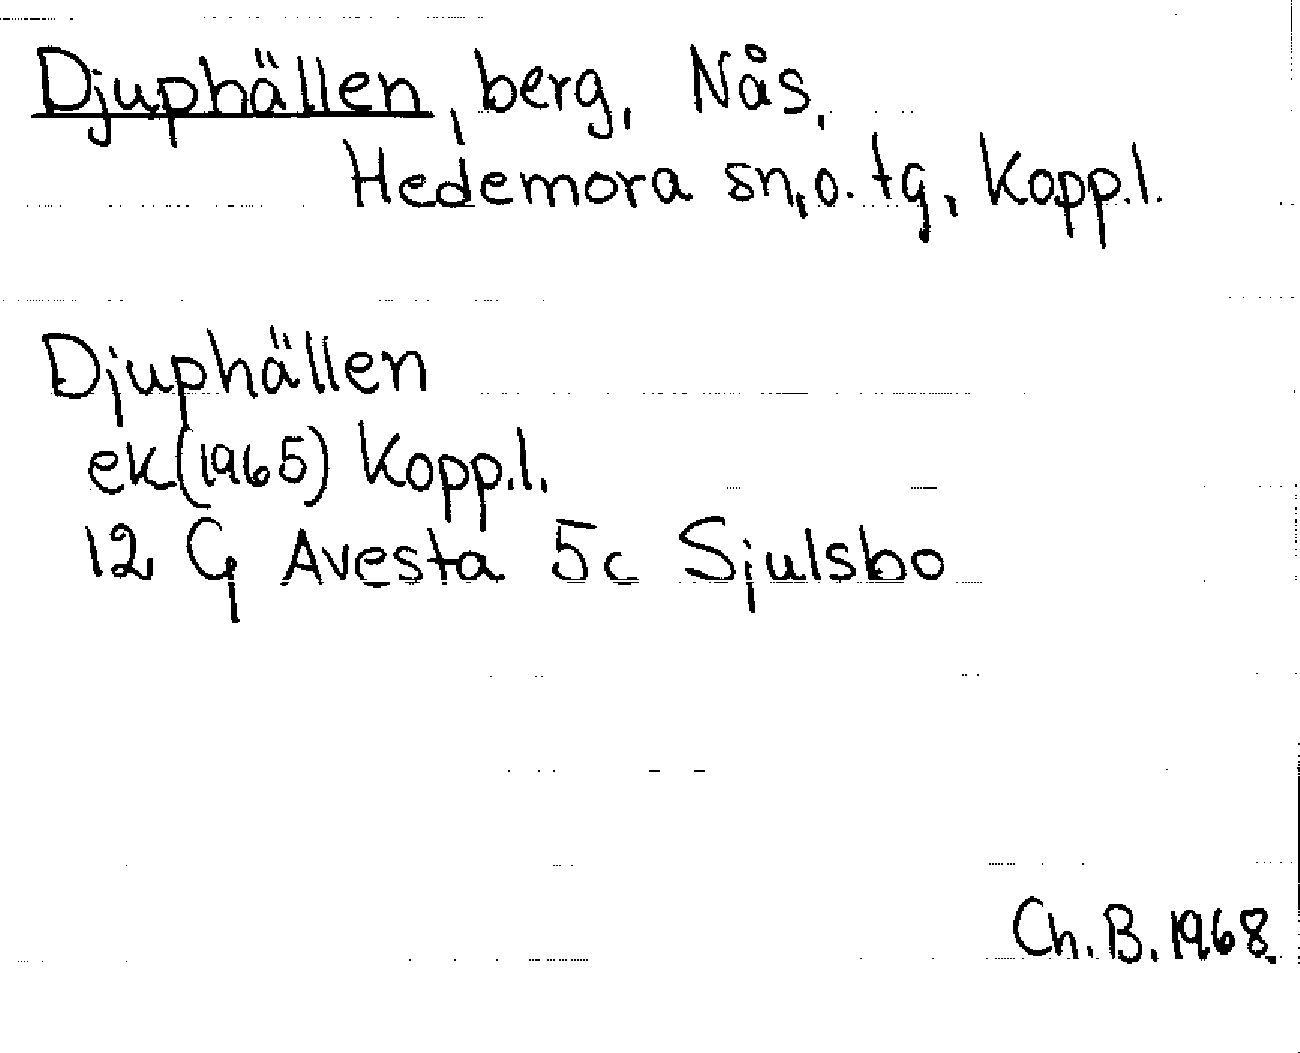 Djuphällen, berg, Nås,
Hedemora sn, o. tg, Kopp.l.
Djuphällen
ek(1965) Kopp.l.
12 G Avesta 5c Sjulsbo
Ch. B. 1968.